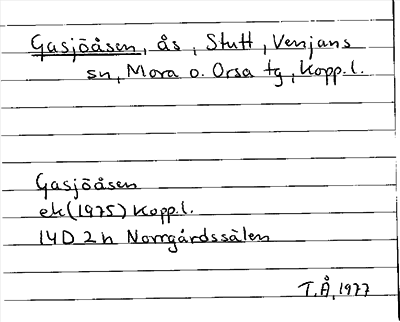 Gasjöåsen, ås, Stutt, Venjans
sn, Mora o. Orsa tg, Kopp.l.
Gasjöåsen
ek(1975) Kopp.l.
14D 2h Norrgårdssälen
T.Å, 1977